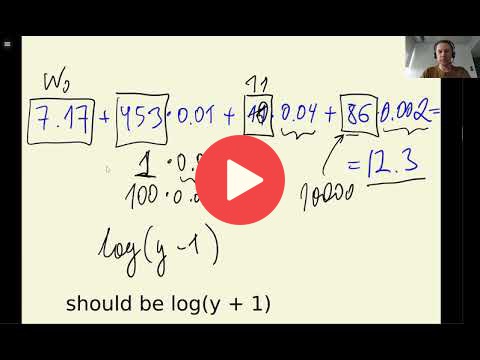 W₀ 11
7.17 + 453 · 0.01 + 10 · 0.04 + 86 · 0.002 =
= 12.3
1 · 0.0
100 · 0.0
10000
log(y - 1)
should be log(y + 1)